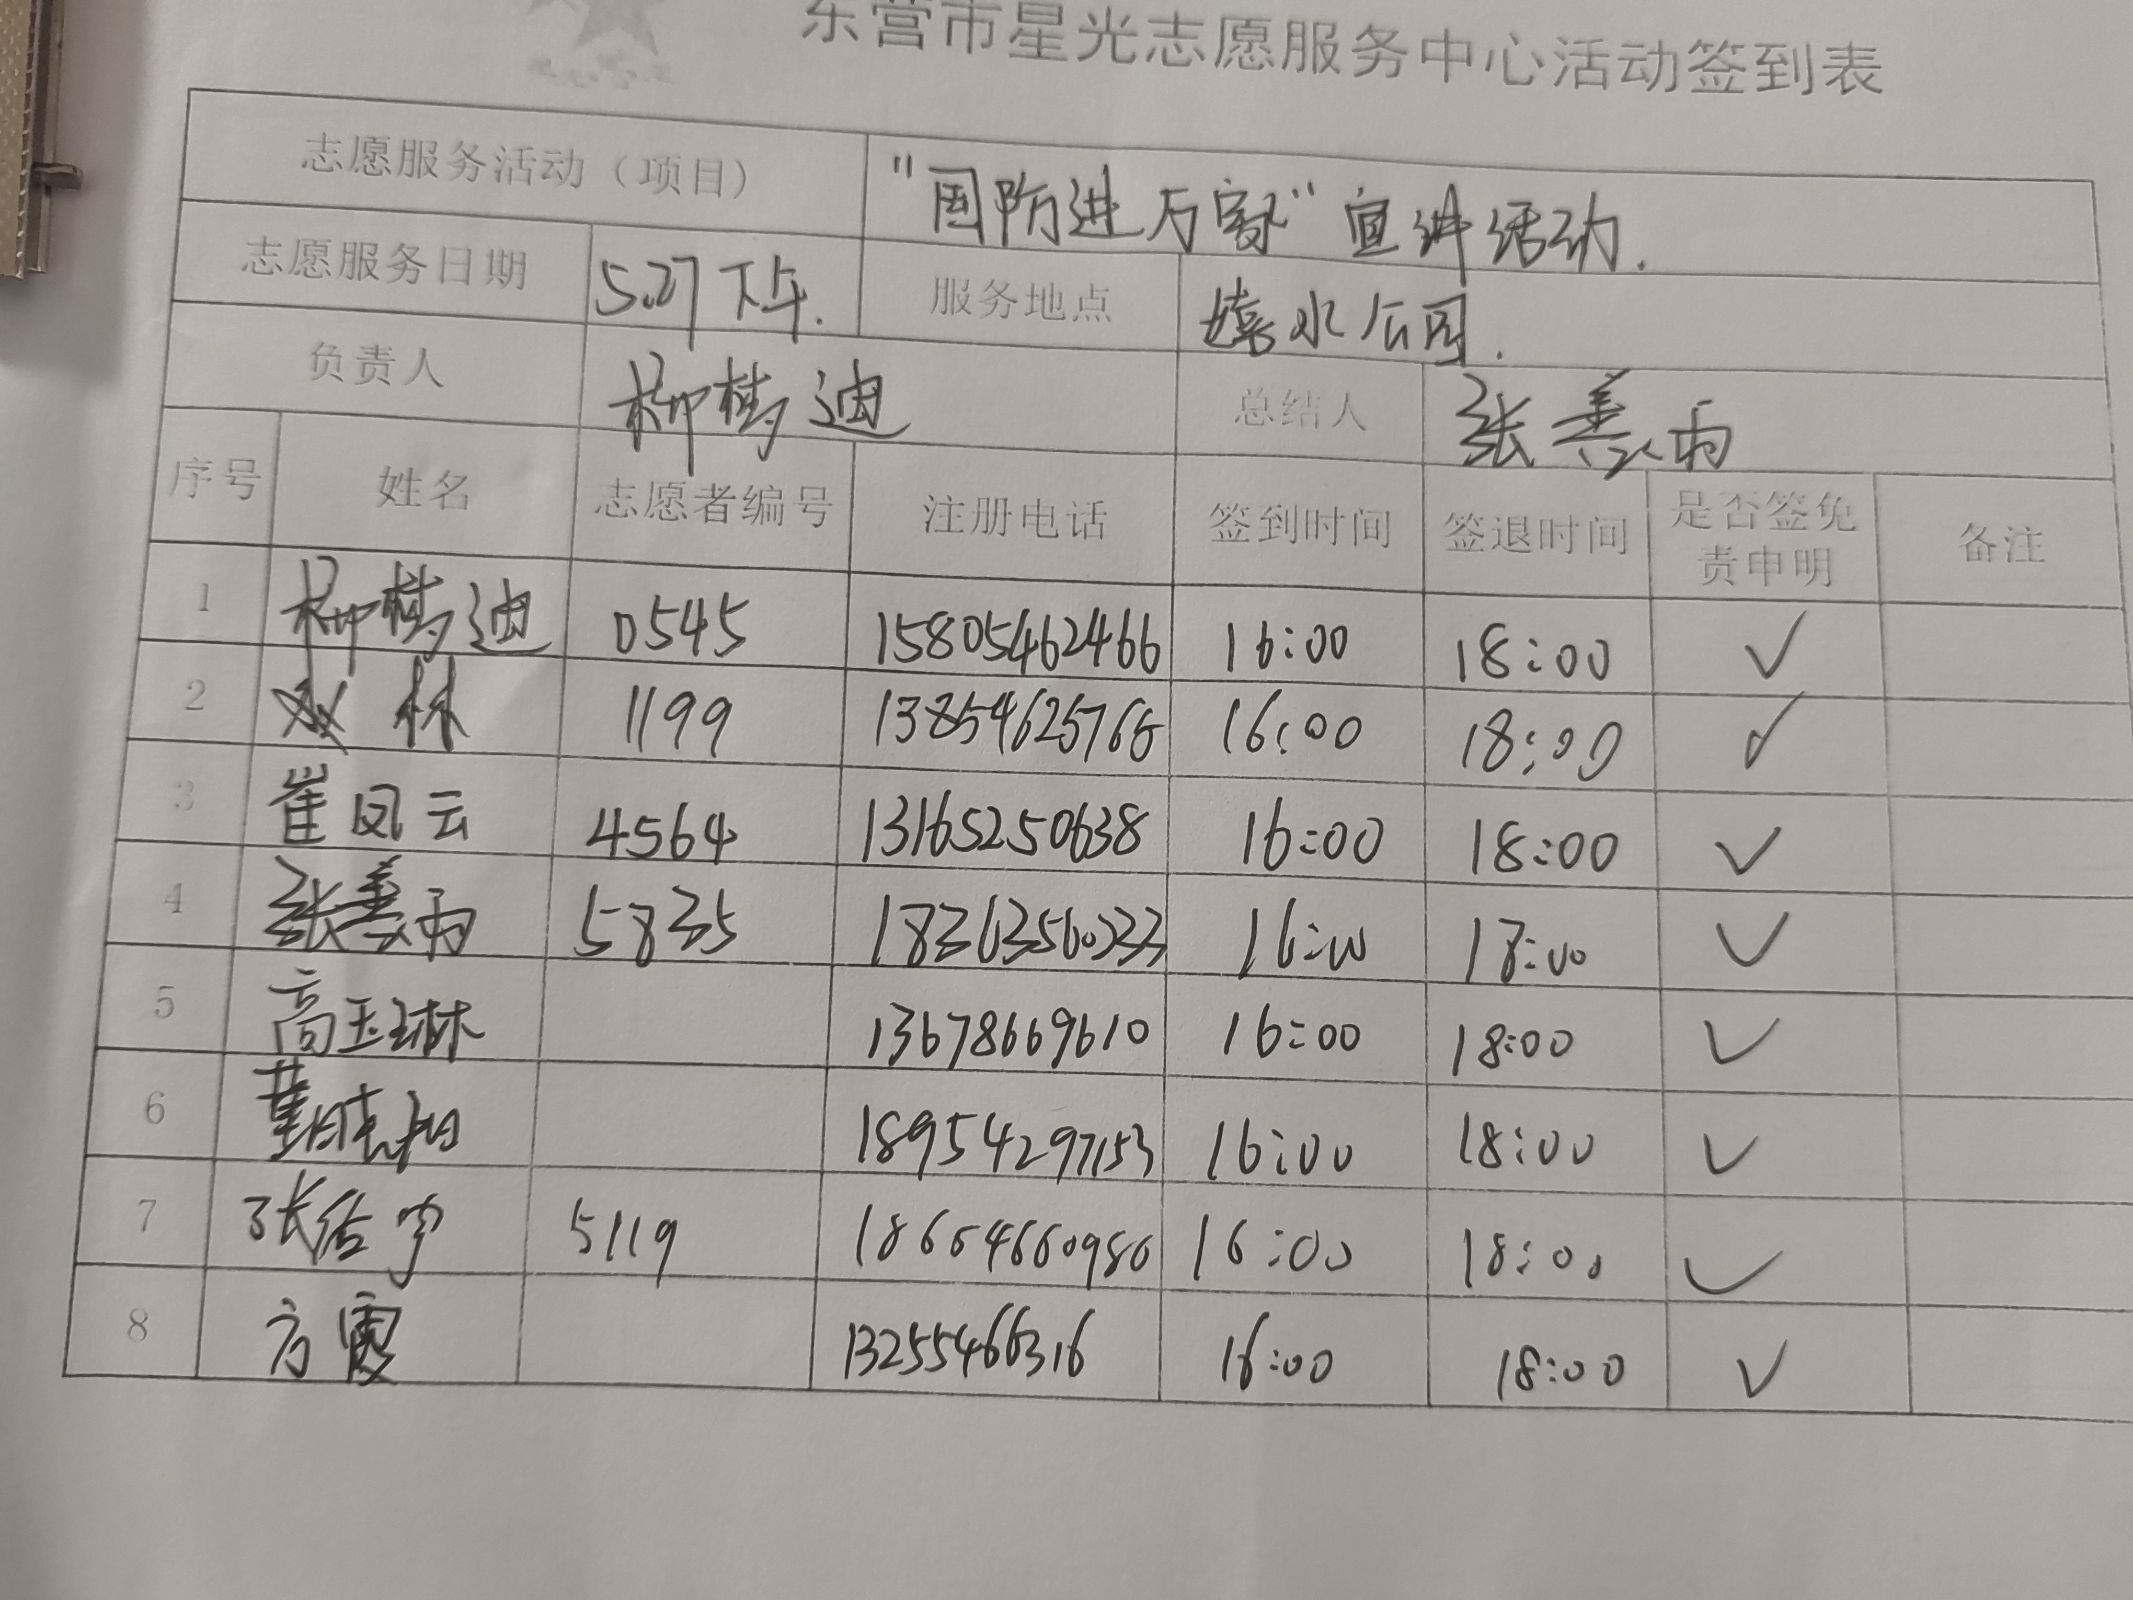 东营市星光志愿服务中心活动签到表
志愿服务活动（项目） "国防进万家"宣讲活动.
志愿服务日期 5.27下午. 服务地点 嬉水公园.
负责人 柳树迪 总结人 张善雨
序号 姓名 志愿者编号 注册电话 签到时间 签退时间 是否签免责申明 备注
1 柳树迪 0545 15805462466 16:00 18:00 ✓
2 林 1199 13854625768 16:00 18:00 ✓
3 崔凤云 4564 13165250638 16:00 18:00 ✓
4 张善雨 5835 16:00 18:00 ✓
5 高玉琳 13678669610 16:00 18:00 ✓
6 董晓阳 18954297153 16:00 18:00 ✓
7 张 宇 5119 18654660986 16:00 18:00 ✓
8 方霞 13255466316 16:00 18:00 ✓